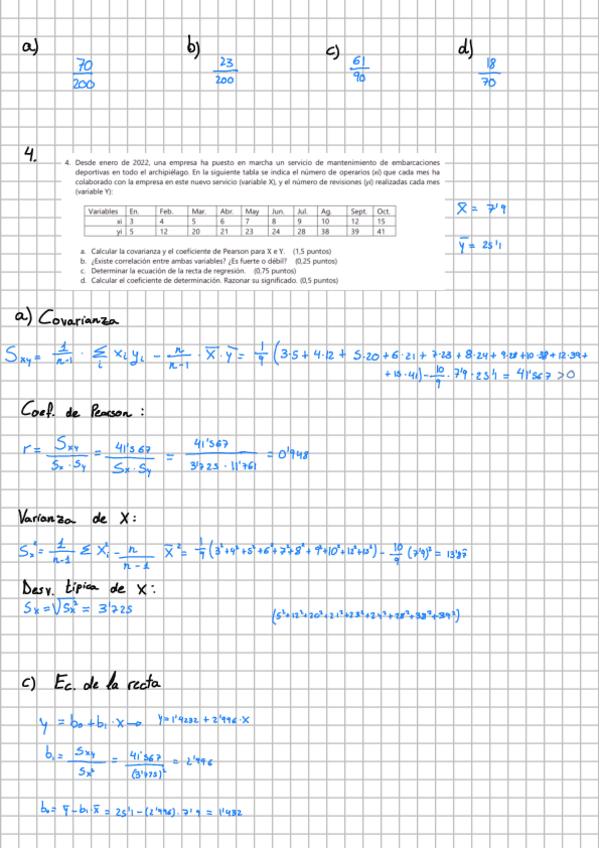 a) b) c) d)
70/200 23/200 61/90 18/70
4.
4. Desde enero de 2022, una empresa ha puesto en marcha un servicio de mantenimiento de embarcaciones
deportivas en todo el archipiélago. En la siguiente tabla se indica el número de operarios (xi) que cada mes ha
colaborado con la empresa en este nuevo servicio (variable X), y el número de revisiones (yi) realizadas cada mes
(variable Y):
x̄ = 7'9
Variables En. Feb. Mar. Abr. May Jun. Jul. Ag. Sept. Oct.
xi 3 4 5 6 7 8 9 10 12 15
yi 5 12 20 21 23 24 28 38 39 41
ȳ = 25'1
a. Calcular la covarianza y el coeficiente de Pearson para X e Y. (1,5 puntos)
b. ¿Existe correlación entre ambas variables? ¿Es fuerte o débil? (0,25 puntos)
c. Determinar la ecuación de la recta de regresión. (0,75 puntos)
d. Calcular el coeficiente de determinación. Razonar su significado. (0,5 puntos)
a) Covarianza
Sxy = 1/n-1 · Σi xi yi - n/n-1 · x̄ · ȳ = 1/9 (3·5 + 4·12 + 5·20 + 6·21 + 7·23 + 8·24 + 9·28 + 10·38 + 12·39 +
+ 15·41) - 10/9 · 7'9 · 25'1 = 41'567 > 0
Coef. de Pearson:
r = Sxy / Sx · Sy = 41'567 / Sx · Sy = 41'567 / 3'725 · 11'761 = 0'948
Varianza de X:
Sx² = 1/n-1 Σ Xi² - n/n-1 x̄² = 1/9 (3²+4²+5²+6²+7²+8²+9²+10²+12²+15²) - 10/9 (7'9)² = 13'87
Desv. típica de X:
Sx = √Sx² = 3'725
(5²+12²+20²+21²+23²+24²+28²+38²+39²)
c) Ec. de la recta
y = b₀ + b₁ · x → y = 1'4232 + 2'996 · x
b₁ = Sxy / Sx² = 41'567 / (3'725)² = 2'996
b₀ = ȳ - b₁ · x̄ = 25'1 - (2'996) · 7'9 = 1'432